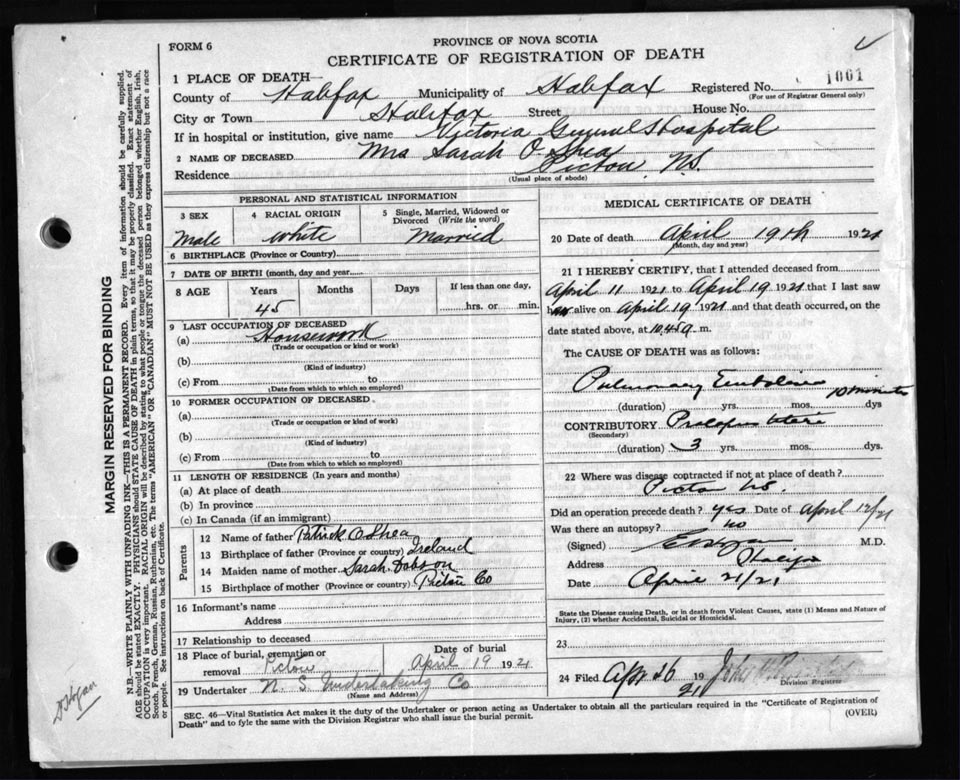 PROVINCE OF NOVA SCOTIA
FORM 6
CERTIFICATE OF REGISTRATION OF DEATH
1 PLACE OF DEATH—
Registered No. 1001
County of Halifax Municipality of Halifax (For use of Registrar General only)
City or Town Halifax Street House No.
If in hospital or institution, give name Victoria General Hospital
2 NAME OF DECEASED Mrs Sarah O'Shea
Residence Pictou, N.S.
(Usual place of abode)
PERSONAL AND STATISTICAL INFORMATION
3 SEX 4 RACIAL ORIGIN 5 Single, Married, Widowed or Divorced (Write the word)
Male White Married
6 BIRTHPLACE (Province or Country)
7 DATE OF BIRTH (month, day and year
8 AGE Years Months Days If less than one day,
45 hrs. or min.
9 LAST OCCUPATION OF DECEASED
(a) Housework
(Trade or occupation or kind of work)
(b)
(Kind of industry)
(c) From to
(Date from which to which so employed)
10 FORMER OCCUPATION OF DECEASED
(a)
(Trade or occupation or kind of work)
(b)
(Kind of industry)
(c) From to
(Date from which to which so employed)
11 LENGTH OF RESIDENCE (In years and months)
(a) At place of death
(b) In province
(c) In Canada (if an immigrant)
Parents
12 Name of father Patrick O'Shea
13 Birthplace of father (Province or country) Ireland
14 Maiden name of mother Sarah Dobson
15 Birthplace of mother (Province or country) Pictou Co
16 Informant's name
Address
17 Relationship to deceased
18 Place of burial, cremation or removal Pictou Date of burial April 19 1921
19 Undertaker N. S. Undertaking Co
(Name and Address)
MEDICAL CERTIFICATE OF DEATH
20 Date of death April 19th 1921
(Month, day and year)
21 I HEREBY CERTIFY, that I attended deceased from
April 11 1921 to April 19 1921 that I last saw
alive on April 19 1921 and that death occurred, on the
date stated above, at 10.45 m.
The CAUSE OF DEATH was as follows:
Pulmonary Embolism
10 minutes
(duration) yrs. mos. dys
CONTRIBUTORY Prolapsus Uteri
(Secondary)
(duration) 3 yrs. mos. dys.
22 Where was disease contracted if not at place of death?
Pictou N.S.
Did an operation precede death? yes Date of April 12/21
Was there an autopsy? no
(Signed) M.D.
Address
Date April 21/21
State the Disease causing Death, or in death from Violent Causes, state (1) Means and Nature of
Injury, (2) whether Accidental, Suicidal or Homicidal.
23
24 Filed Apr 26 1921
Division Registrar
SEC. 46—Vital Statistics Act makes it the duty of the Undertaker or person acting as Undertaker to obtain all the particulars required in the "Certificate of Registration of
Death" and to fyle the same with the Division Registrar who shall issue the burial permit. (OVER)
MARGIN RESERVED FOR BINDING
N.B.—WRITE PLAINLY WITH UNFADING INK—THIS IS A PERMANENT RECORD. Every item of information should be carefully supplied.
AGE should be stated EXACTLY. PHYSICIANS should STATE CAUSE OF DEATH in plain terms, so that it may be properly classified. Exact statement of
OCCUPATION is very important. RACIAL ORIGIN will be described by stating to what people or tongue the deceased person belonged whether English, Irish,
Scotch, French, German, Russian, Ruthenian, etc. The terms "AMERICAN" OR "CANADIAN" MUST NOT BE USED as they express citizenship but not a race
or people. See instructions on back of Certificate.